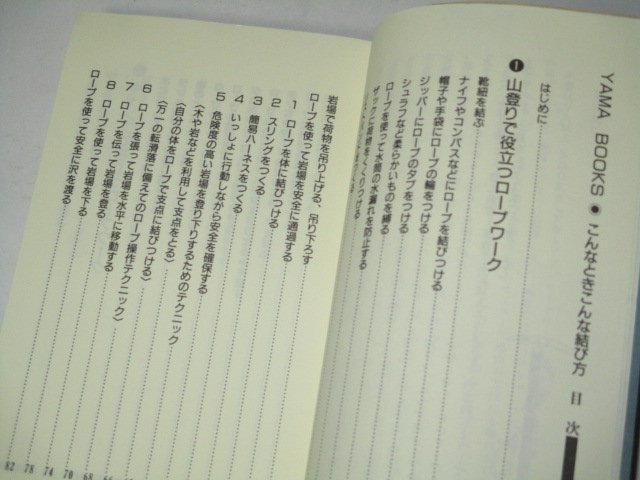 YAMA BOOKS ● こんなときこんな結び方 目次
はじめに
❶ 山登りで役立つロープワーク
靴紐を結ぶ
ナイフやコンパスなどにロープを結びつける
帽子や手袋にロープの輪をつける
ジッパーにロープのタブをつける
シュラフなど柔らかいものを縛る
ロープを使って水筒の水漏れを防止する
岩場で荷物を吊り上げる、吊り下ろす
ロープを使って岩場を安全に通過する
1 ロープを体に結びつける
2 スリングをつくる
3 簡易ハーネスをつくる
4 いっしょに行動しながら安全を確保する
5 危険度の高い岩場を登り下りするためのテクニック
〈木や岩などを利用して支点をとる〉
〈自分の体をロープで支点に結びつける〉
〈万一の転滑落に備えてのロープ操作テクニック〉
6 ロープを張って岩場を水平に移動する
7 ロープを伝って岩場を登る
8 ロープを使って岩場を下る
ロープを使って安全に沢を渡る
68
70
74
78
82